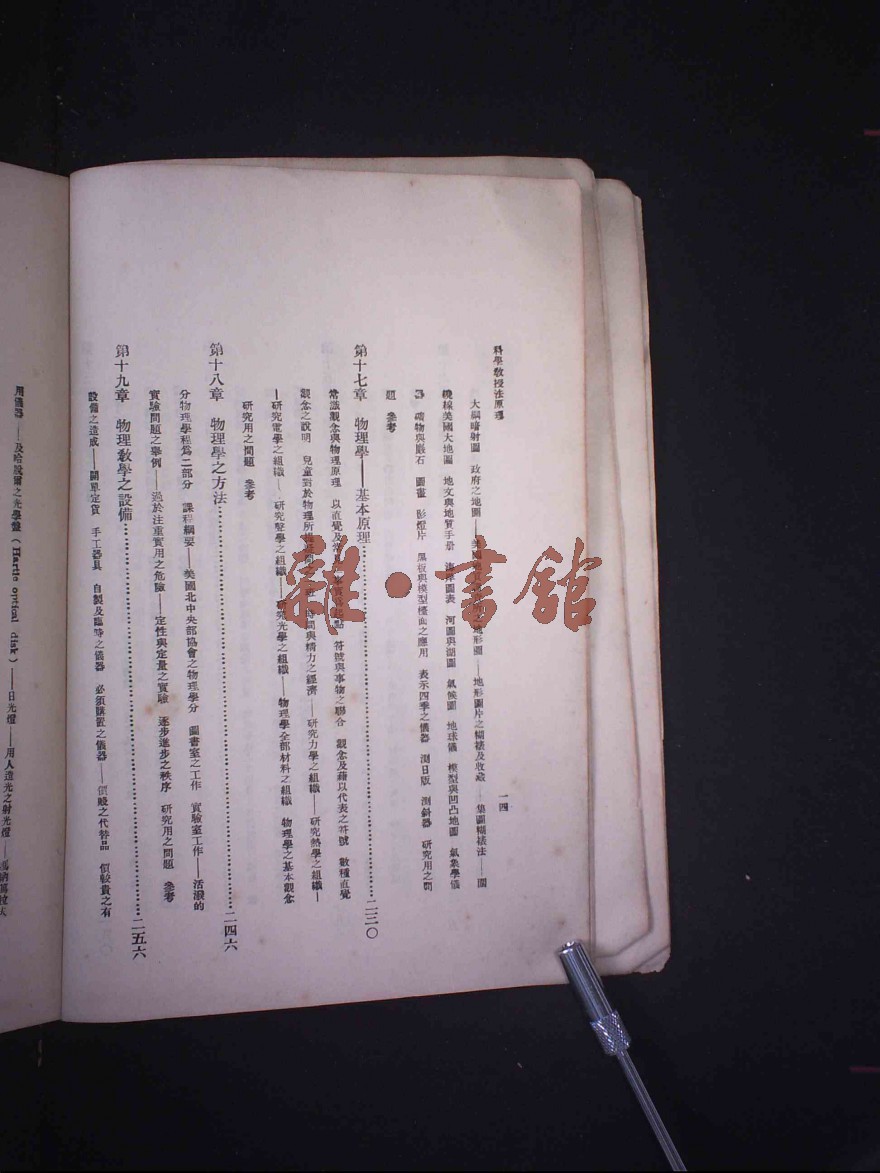 科學教授法原理
一四
大綱暗射圖 政府之地圖 地形圖——地形圖片之糊裱及收藏——集圖糊裱法——圖
機線美國大地圖 地文與地質手册 海岸圖表 河圖與湖圖 氣候圖 地球儀 模型與凹凸地圖 氣象學儀
器 礦物與巖石 圖畫 影燈片 黑板與模型檯面之應用 表示四季之儀器 測日版 測斜器 研究用之問
題 參考
第十七章 物理學——基本原理……二三〇
常識觀念與物理原理 以直覺及 起點 符號與事物之聯合 觀念及藉以代表之符號 數種直覺
觀念之說明 兒童對於物理所 時間與精力之經濟——研究力學之組織——研究熱學之組織—
—研究電學之組織——研究聲學之組織——研究光學之組織——物理學全部材料之組織 物理學之基本觀念
研究用之問題 參考
第十八章 物理學之方法……二四六
分物理學程爲二部分 課程綱要——美國北中央部協會之物理學分 圖書室之工作 實驗室工作——活潑的
實驗問題之舉例——過於注重實用之危險——定性與定量之實驗 逐步進步之秩序 研究用之問題 參考
第十九章 物理教學之設備……二五六
設備之造成——開單定貨 手工器具 自製及臨時之儀器 必須購置之儀器——價賤之代替品 價較貴之有
用儀器——及哈脫爾之光學盤（Hartle optical disk）——日光燈——用人造光之射光燈
雜·書館